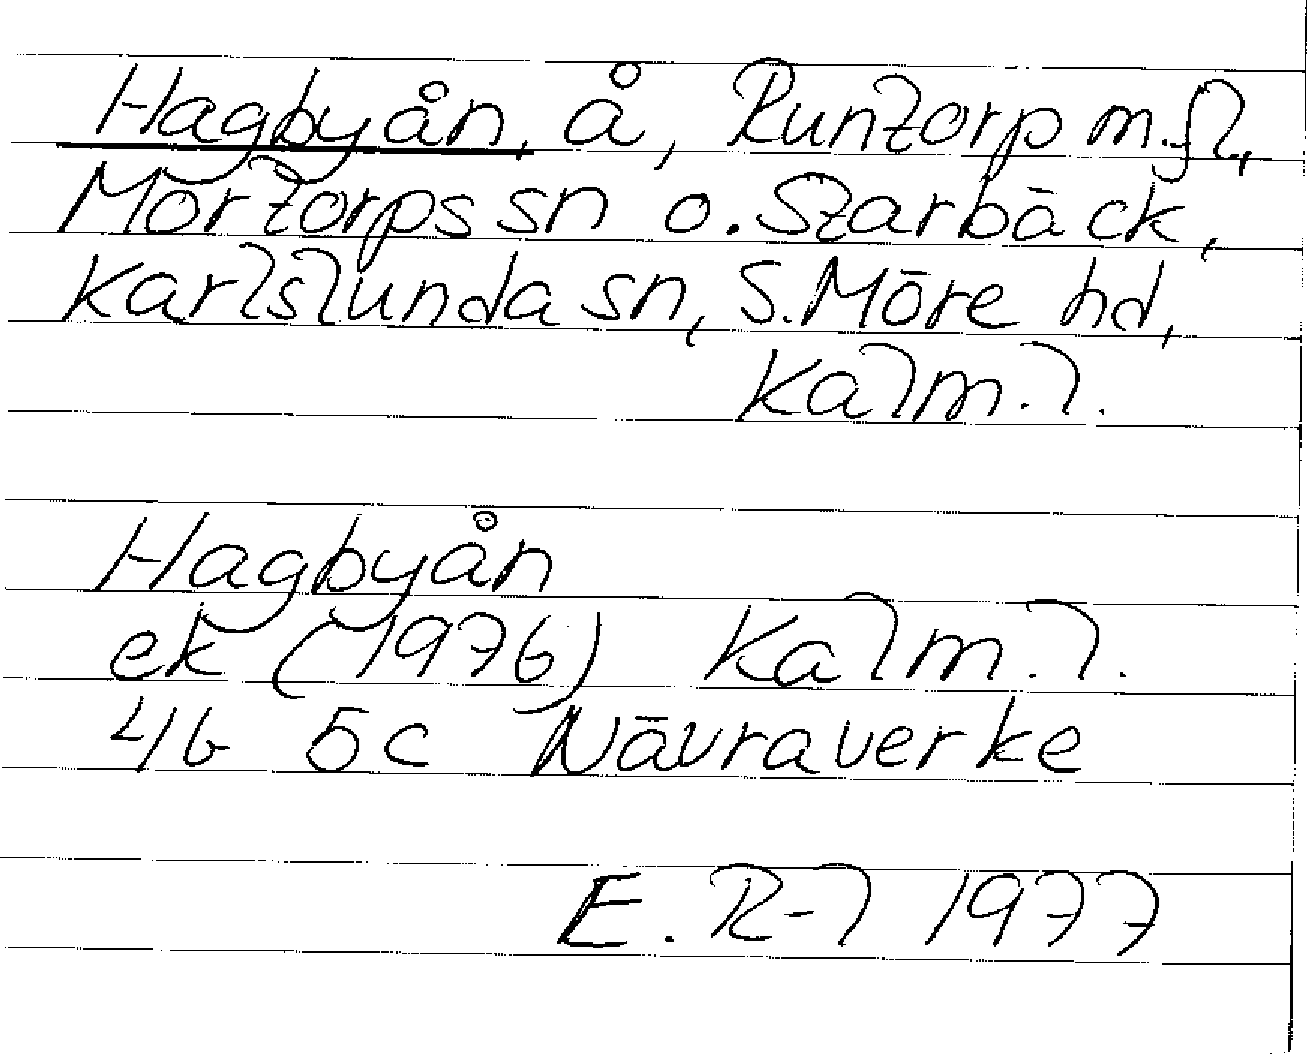 Hagbyån, å, Runtorp m.fl,
Mortorps sn o. Starbäck,
Karlslunda sn, S. Möre hd,
Kalm.l.
Hagbyån
ek (1976) Kalm.l.
4G 5c Nävraverke
E. R-l 1977